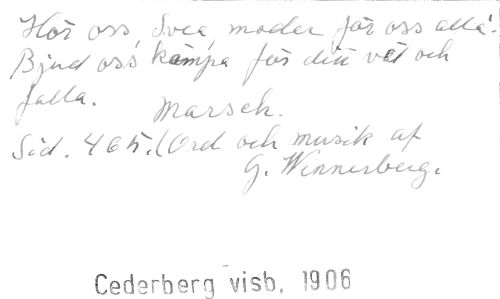 Hör oss, Svea, moder för oss alla!
Bjud oss kämpa för ditt väl och
falla. Marsch.
Sid. 465. (Ord och musik af
G. Wennerberg.
Cederberg visb. 1906